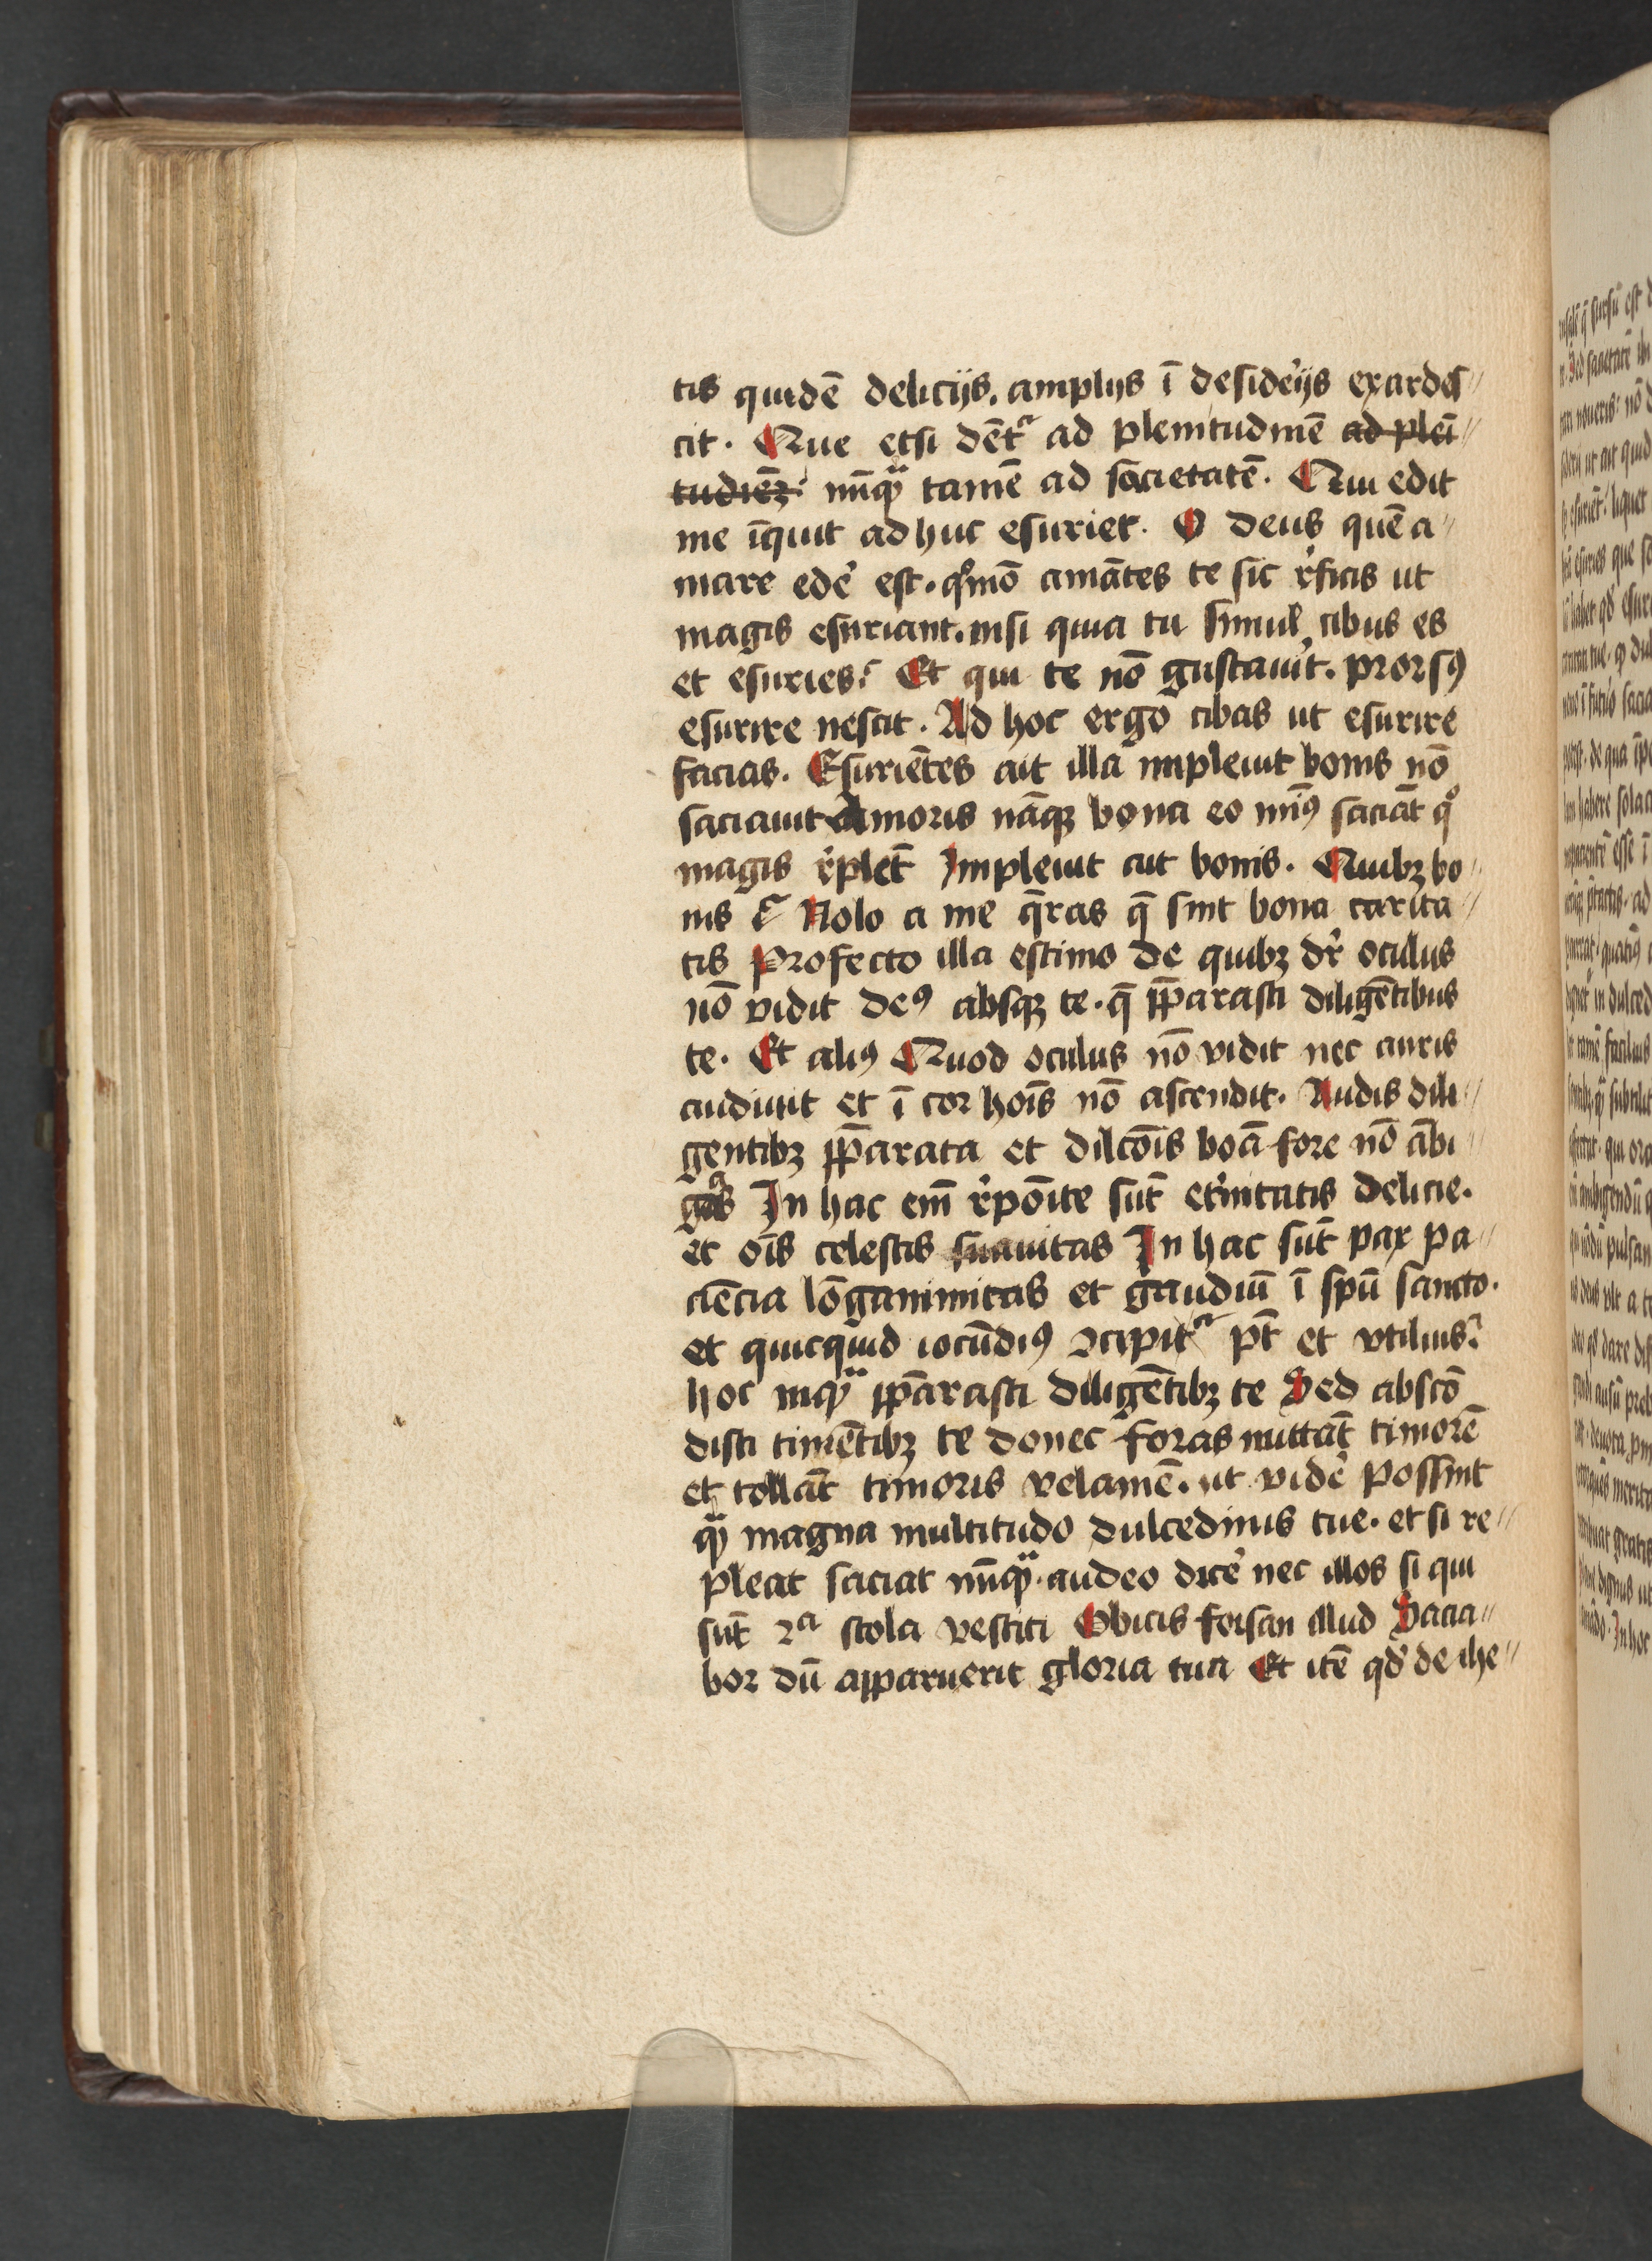 tis quidē delicijs. amplijs ī desideͥijs exardes〃
cit. Que etsi dēt᷑ ad plenitudinē ad pleī〃
tudīeꝫ nūqᷓ tamē ad sacietatē. Qui edit
me īquit adhuc esuriet. O deus quē a〃
mare edeͤ est. qͦmō amātes te sic rͤficis ut
magis esuriant. nisi quia tu simul cibus es
et esuries? Et qui te nō gustauit. prorsꝰ
esurire nescit. Ad hoc ergo cibas ut esurire
facias. Esuriētes ait illa impleuit bonis nō
saciauit Amoris nāqꝫ bona eo minꝰ saciāt qͦ
magis rͤplēt Impleuit ait bonis. Quibꝫ bo〃
nis ? Nolo a me q̄ras q̄ sint bona carita〃
tis Profecto illa estimo de quibꝫ dr̄ oculus
nō vidit deꝰ absqꝫ te. q̄ p̄parasti diligētibus
te. Et aliꝰ Quod oculus nō vidit nec auris
audiuit et ī cor hoīs nō ascendit. Audis dili〃
gentibꝫ p̄parata et dilcōis boā fore nō ābi〃
gas In hac em̄ rͤpōite sūt etͤnitatis delicie.
et oīs celestis suauitas In hac sūt pax pa〃
ciēcia lōganimitas et gaudiū ī spū sancto.
et quicquid iocūdiꝰ ꝯcipit᷑ pt̄ et vtilius?
hoc inqᷓ p̄parasti diligētibꝫ te Sed abscō
disti timētibꝫ te donec foras mittāt timorē
et tollāt timoris velamē. ut videͤ possint
qᷓ magna multitudo dulcedinis tue. et si re〃
pleat saciat nūqᷓ. audeo diceͤ nec illos si qui
sūt 2ᵃ stola vestiti Obicis forsan illud Sacia〃
bor dū apparuerit gloria tua Et itē qd̄ de ihe〃